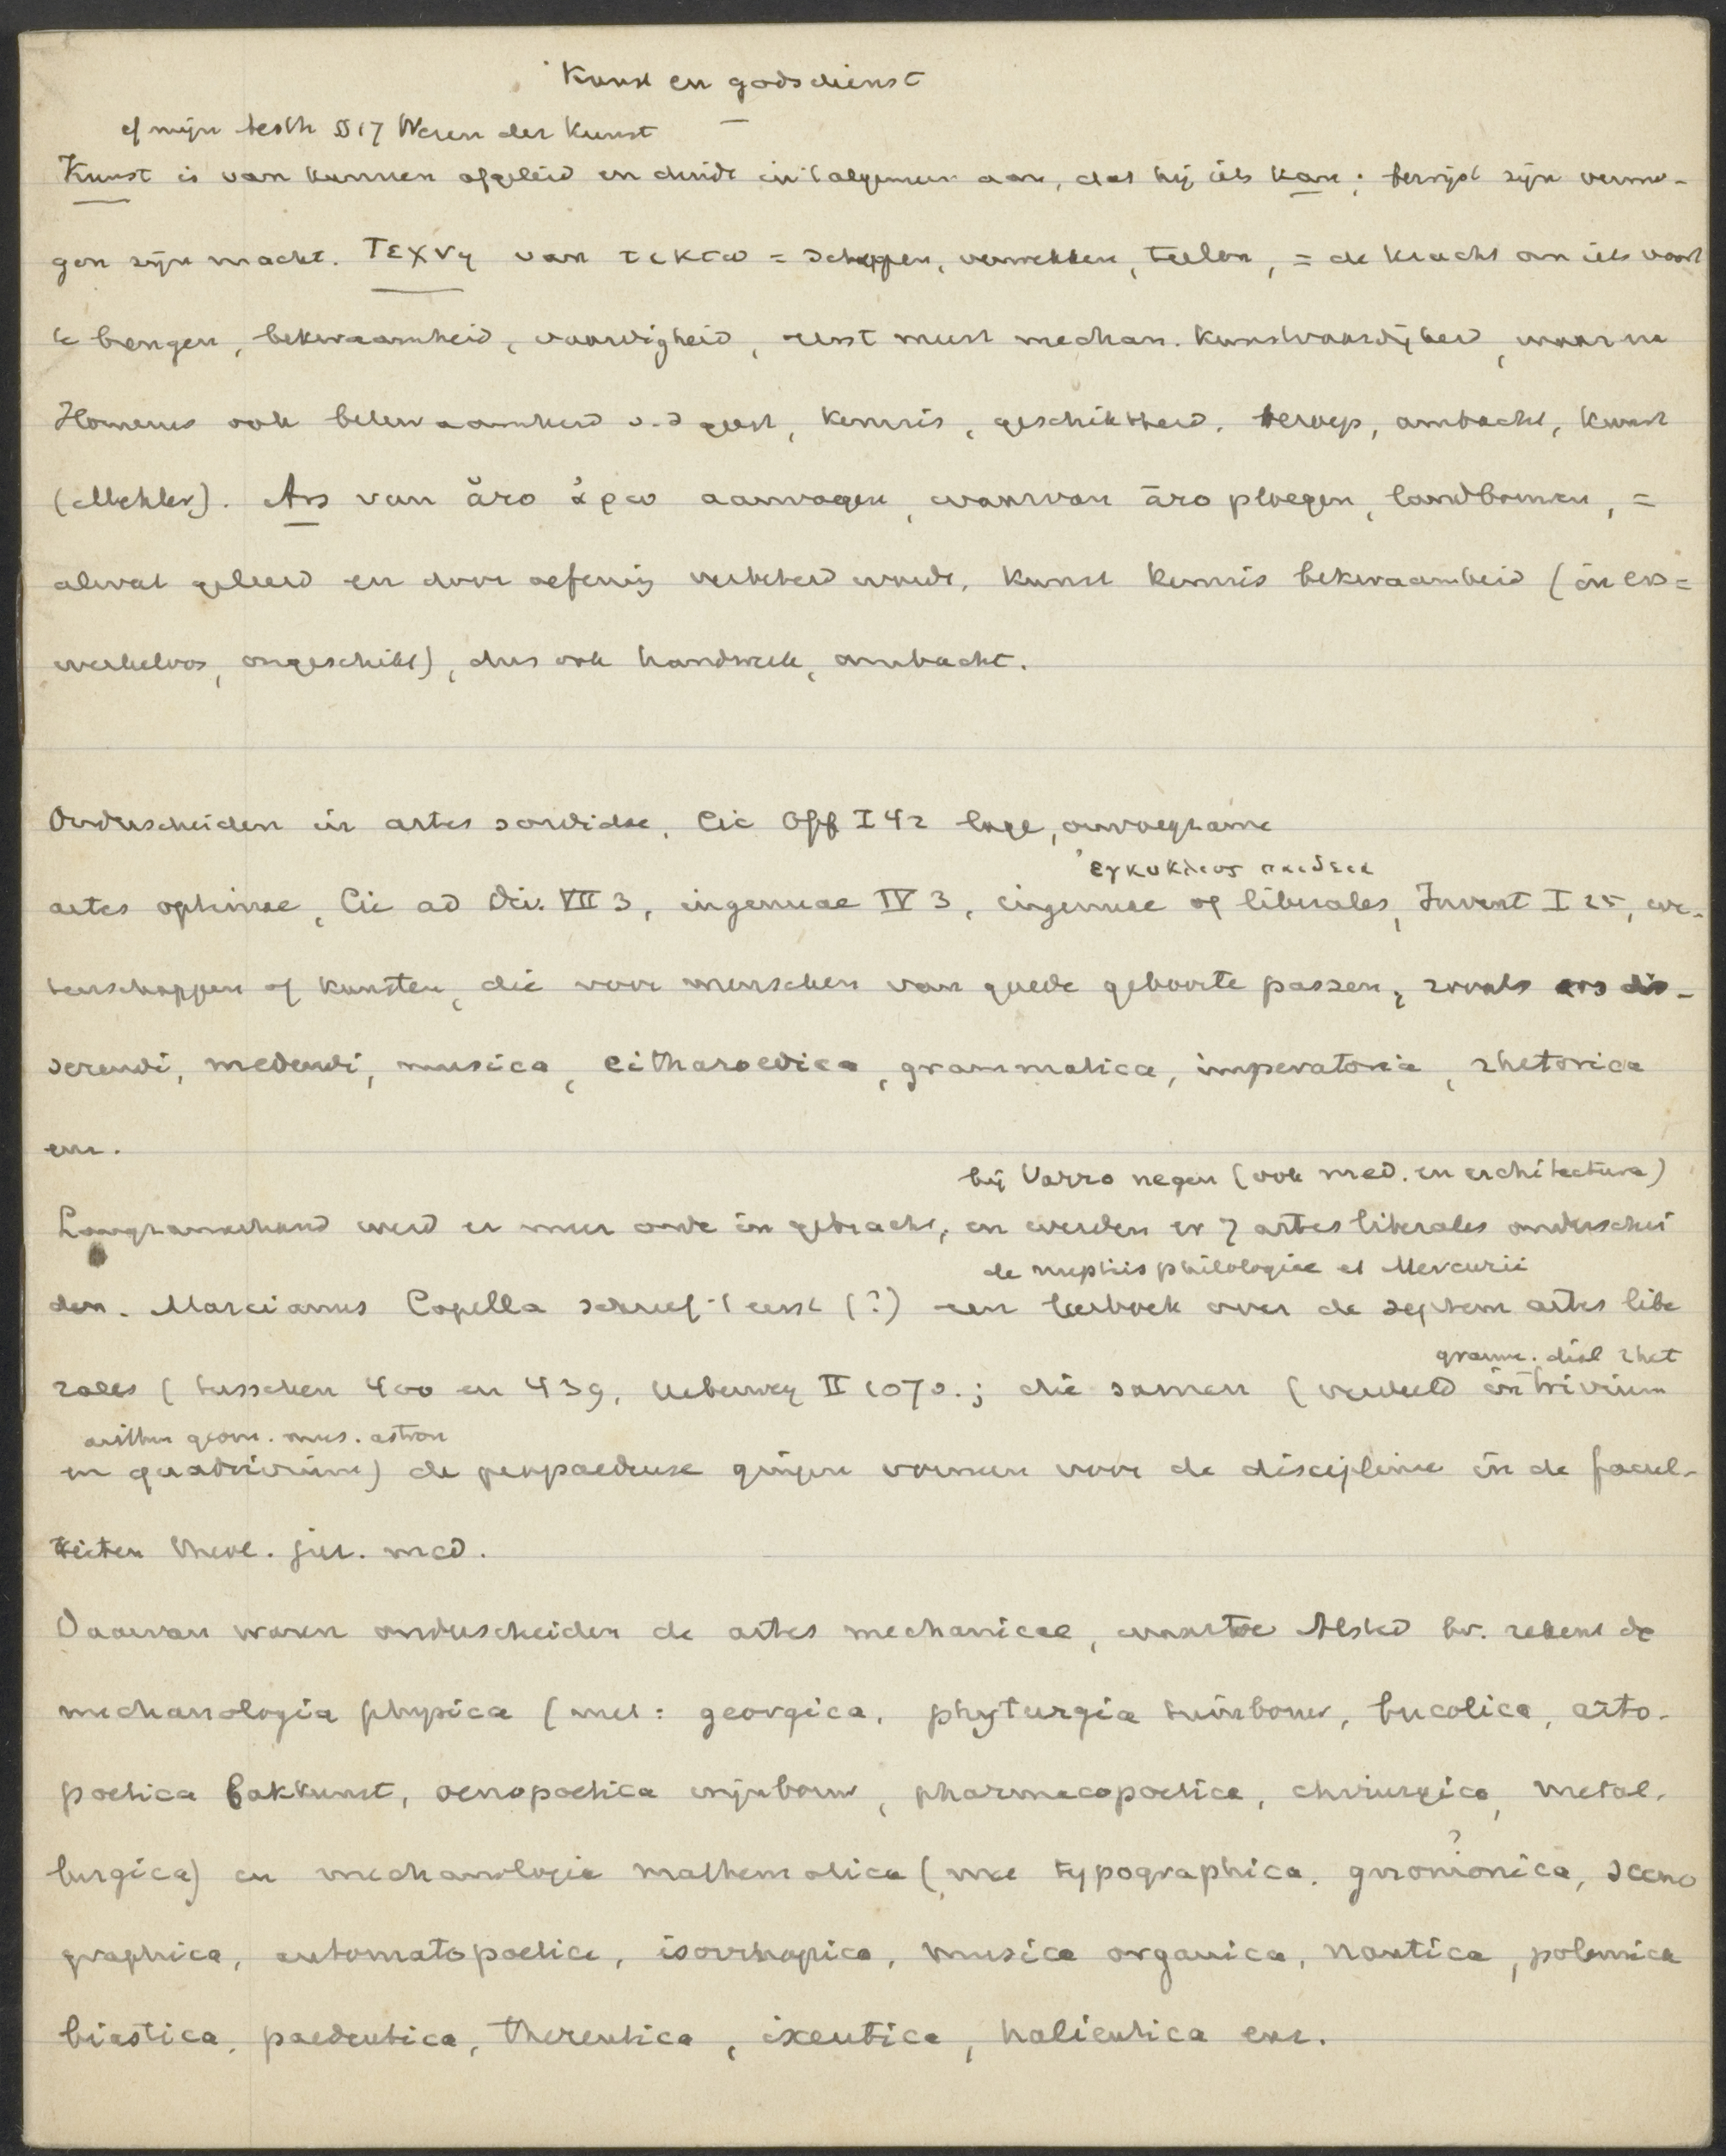 Kunst en godsdienst
cf mijn besch § 17 Wezen der Kunst
Kunst is van kunnen afgeleid en duidt in 't algemeen aan, dat hij iets kan; bewijst zijn vermo-
gen zijn macht. Τεχνη van τεκτω = scheppen, verwekken, teelen, = de kracht om iets voort
te brengen, bekwaamheid, vaardigheid, eerst meest mechan. kunstvaardigheid, waarna
Homerus ook bekwaamheid v. d geest, kennis, geschiktheid, beroep, ambacht, kunst
(Mehler). Ars van ăro ἀρω aanvoegen, waarvan āro ploegen, landbouwen, =
alwat geleerd en door oefening verbeterd wordt, kunst kennis bekwaamheid (in ers =
werkeloos, ongeschikt), dus ook handwerk, ambacht.
Onderscheiden in artes sordidae, Cic Off I 42 lage, onvoegzame
ἐγκυκλιος παιδεια
artes optimae, Cic ad Div. VII 3, ingenuae IV 3, ingenuae of liberales, Invent I 25, we-
tenschappen of kunsten, die voor menschen van goede geboorte passen, zooals ars dis-
serendi, medendi, musica, citharoedica, grammatica, imperatoria, rhetorica
enz.
bij Varro negen (ook med. en architectura)
Langzamerhand werd er meer orde in gebracht, en werden er 7 artes liberales onderschei
de nuptiis philologiae et Mercurii
den. Marcianus Capella schreef 't eerst (?) een leerboek over de septem artes libe
gramm. dial rhet
rales (tusschen 400 en 439, Ueberweg II 107v.; die samen (verdeeld in trivium
arithm geom. mus. astron
en quadrivium) de propaedeuse gingen vormen voor de discipline in de facul-
teiten theol. jur. med.
Daarvan waren onderscheiden de artes mechanicae, waartoe Alsted bv. rekent de
mechanologia physica (met: georgica, phyturgia tuinbouw, bucolica, arto-
poetica bakkunst, oenopoetica wijnbouw, pharmacopoetica, chirurgica, metal-
lurgica) en mechanologia mathematica (met typographica, gnomonica ?, sceno
graphica, automatopoetica, isorrhopica, musica organica, nautica, polemica
biastica, paedeutica, thereutica, ixeutica, halieutica enz.